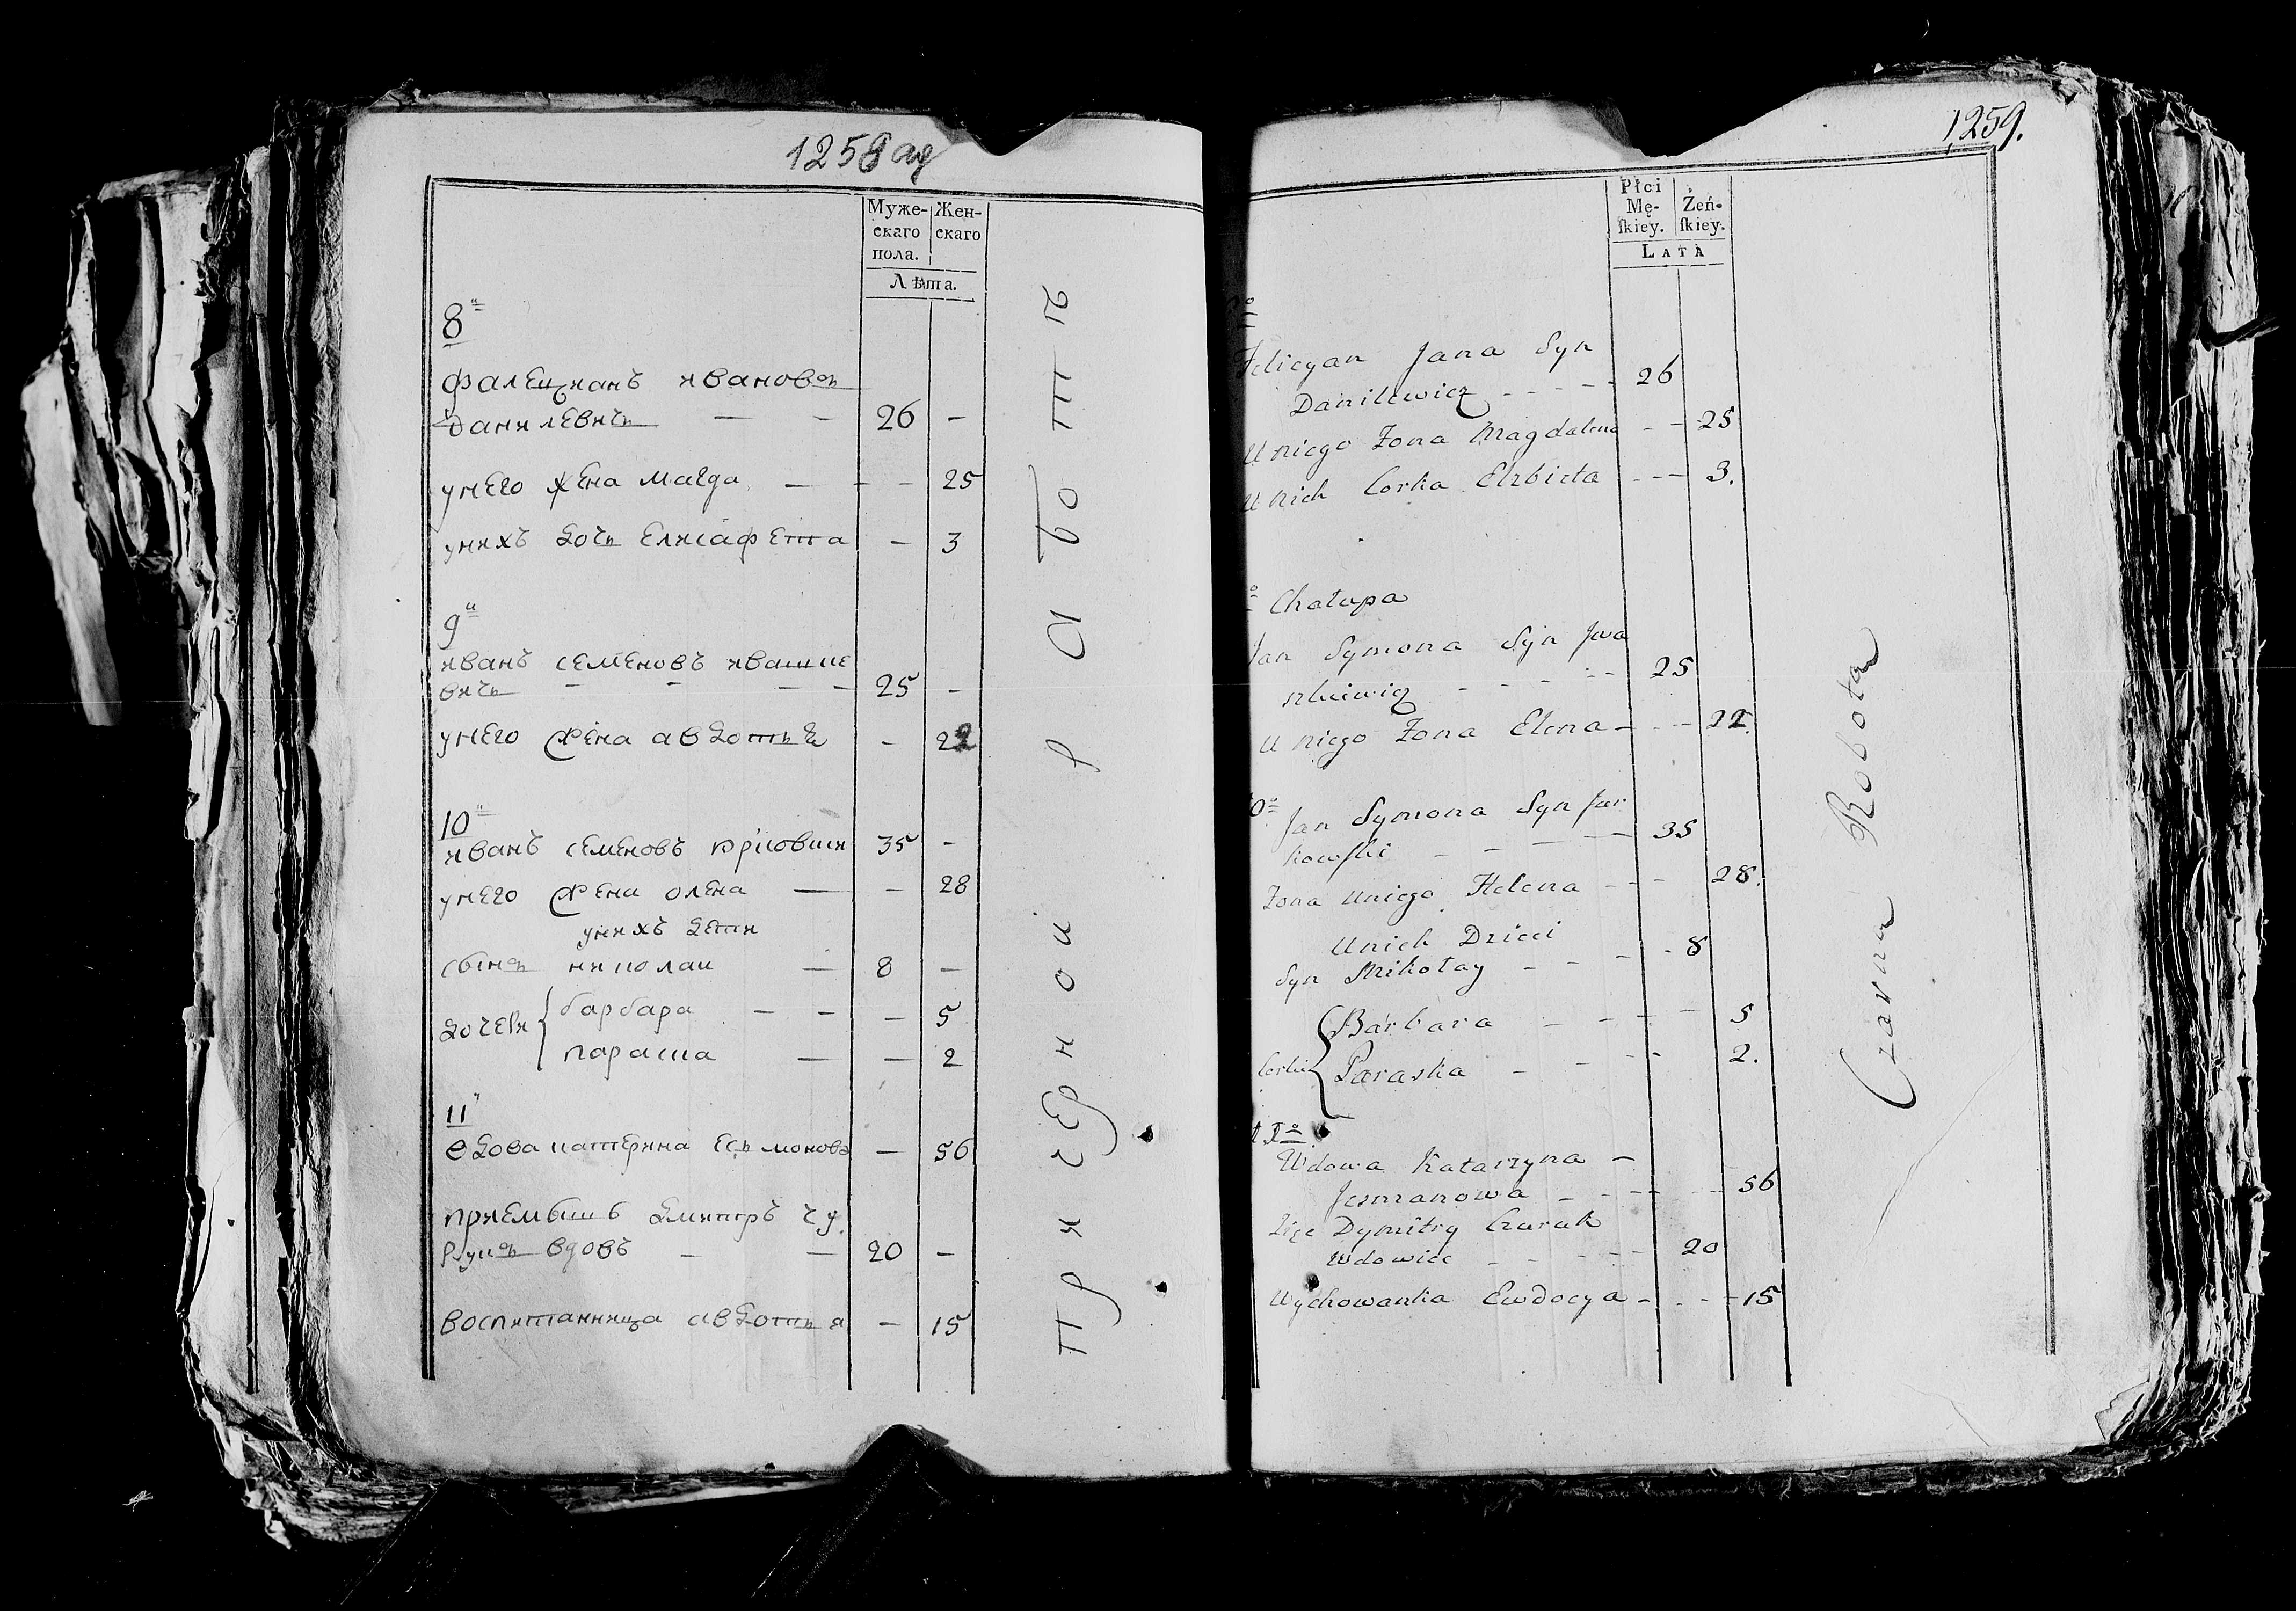 1258 ад
Муже-
скаго
пола.
Жен-
скаго
Лѣта.
8й
Фалеціанъ ивановъ
данилевичь — — 26 —
унего жена Магда — — — 25
унихъ дочь елисафета — 3
9й
иванъ семеновъ ивашке
вичь — — — — 25 —
унего жена авдотья — 22
10й
иванъ семеновъ юрковски 35 —
унего жена олена — — 28
унихъ дети
сынъ николаи — 8 —
дочери { барбара — — — 5
параша — — 2
11й
вдова катерина есьмонова — 56
приемышъ дмитръ чу
рукъ вдовъ — — 20 —
воспитанница авдотья — 15
при черной работѣ
1259.
Płci
Mę-
ſkiey.
Żeń-
ſkiey.
LATA
Felicyan Jana Syn
Danilewicz - - - - 26
U niego Zona Magdalena - - 25
U nich Corka Elzbieta - - - 3.
Chałupa
Jan Symona Syn Jwa
szkiewicz - - - - - 25
U niego Zona Elena - - - 22.
10o
Jan Symona Syn Jur
kowſki - - - — 35
Zona Uniego Helena - - - 28.
Unich Dzieci
Syn Mikołay - - - - 8
Corki { Barbara - - - - 5
Paraska - - - - 2.
Wdowa Katarzyna -
Jesmanowa - - - - - 56
Zięć Dymitry Czuruk
Wdowiec - - - - - 20
Wychowanka Ewdocya - - - - 15
Czarna Robota